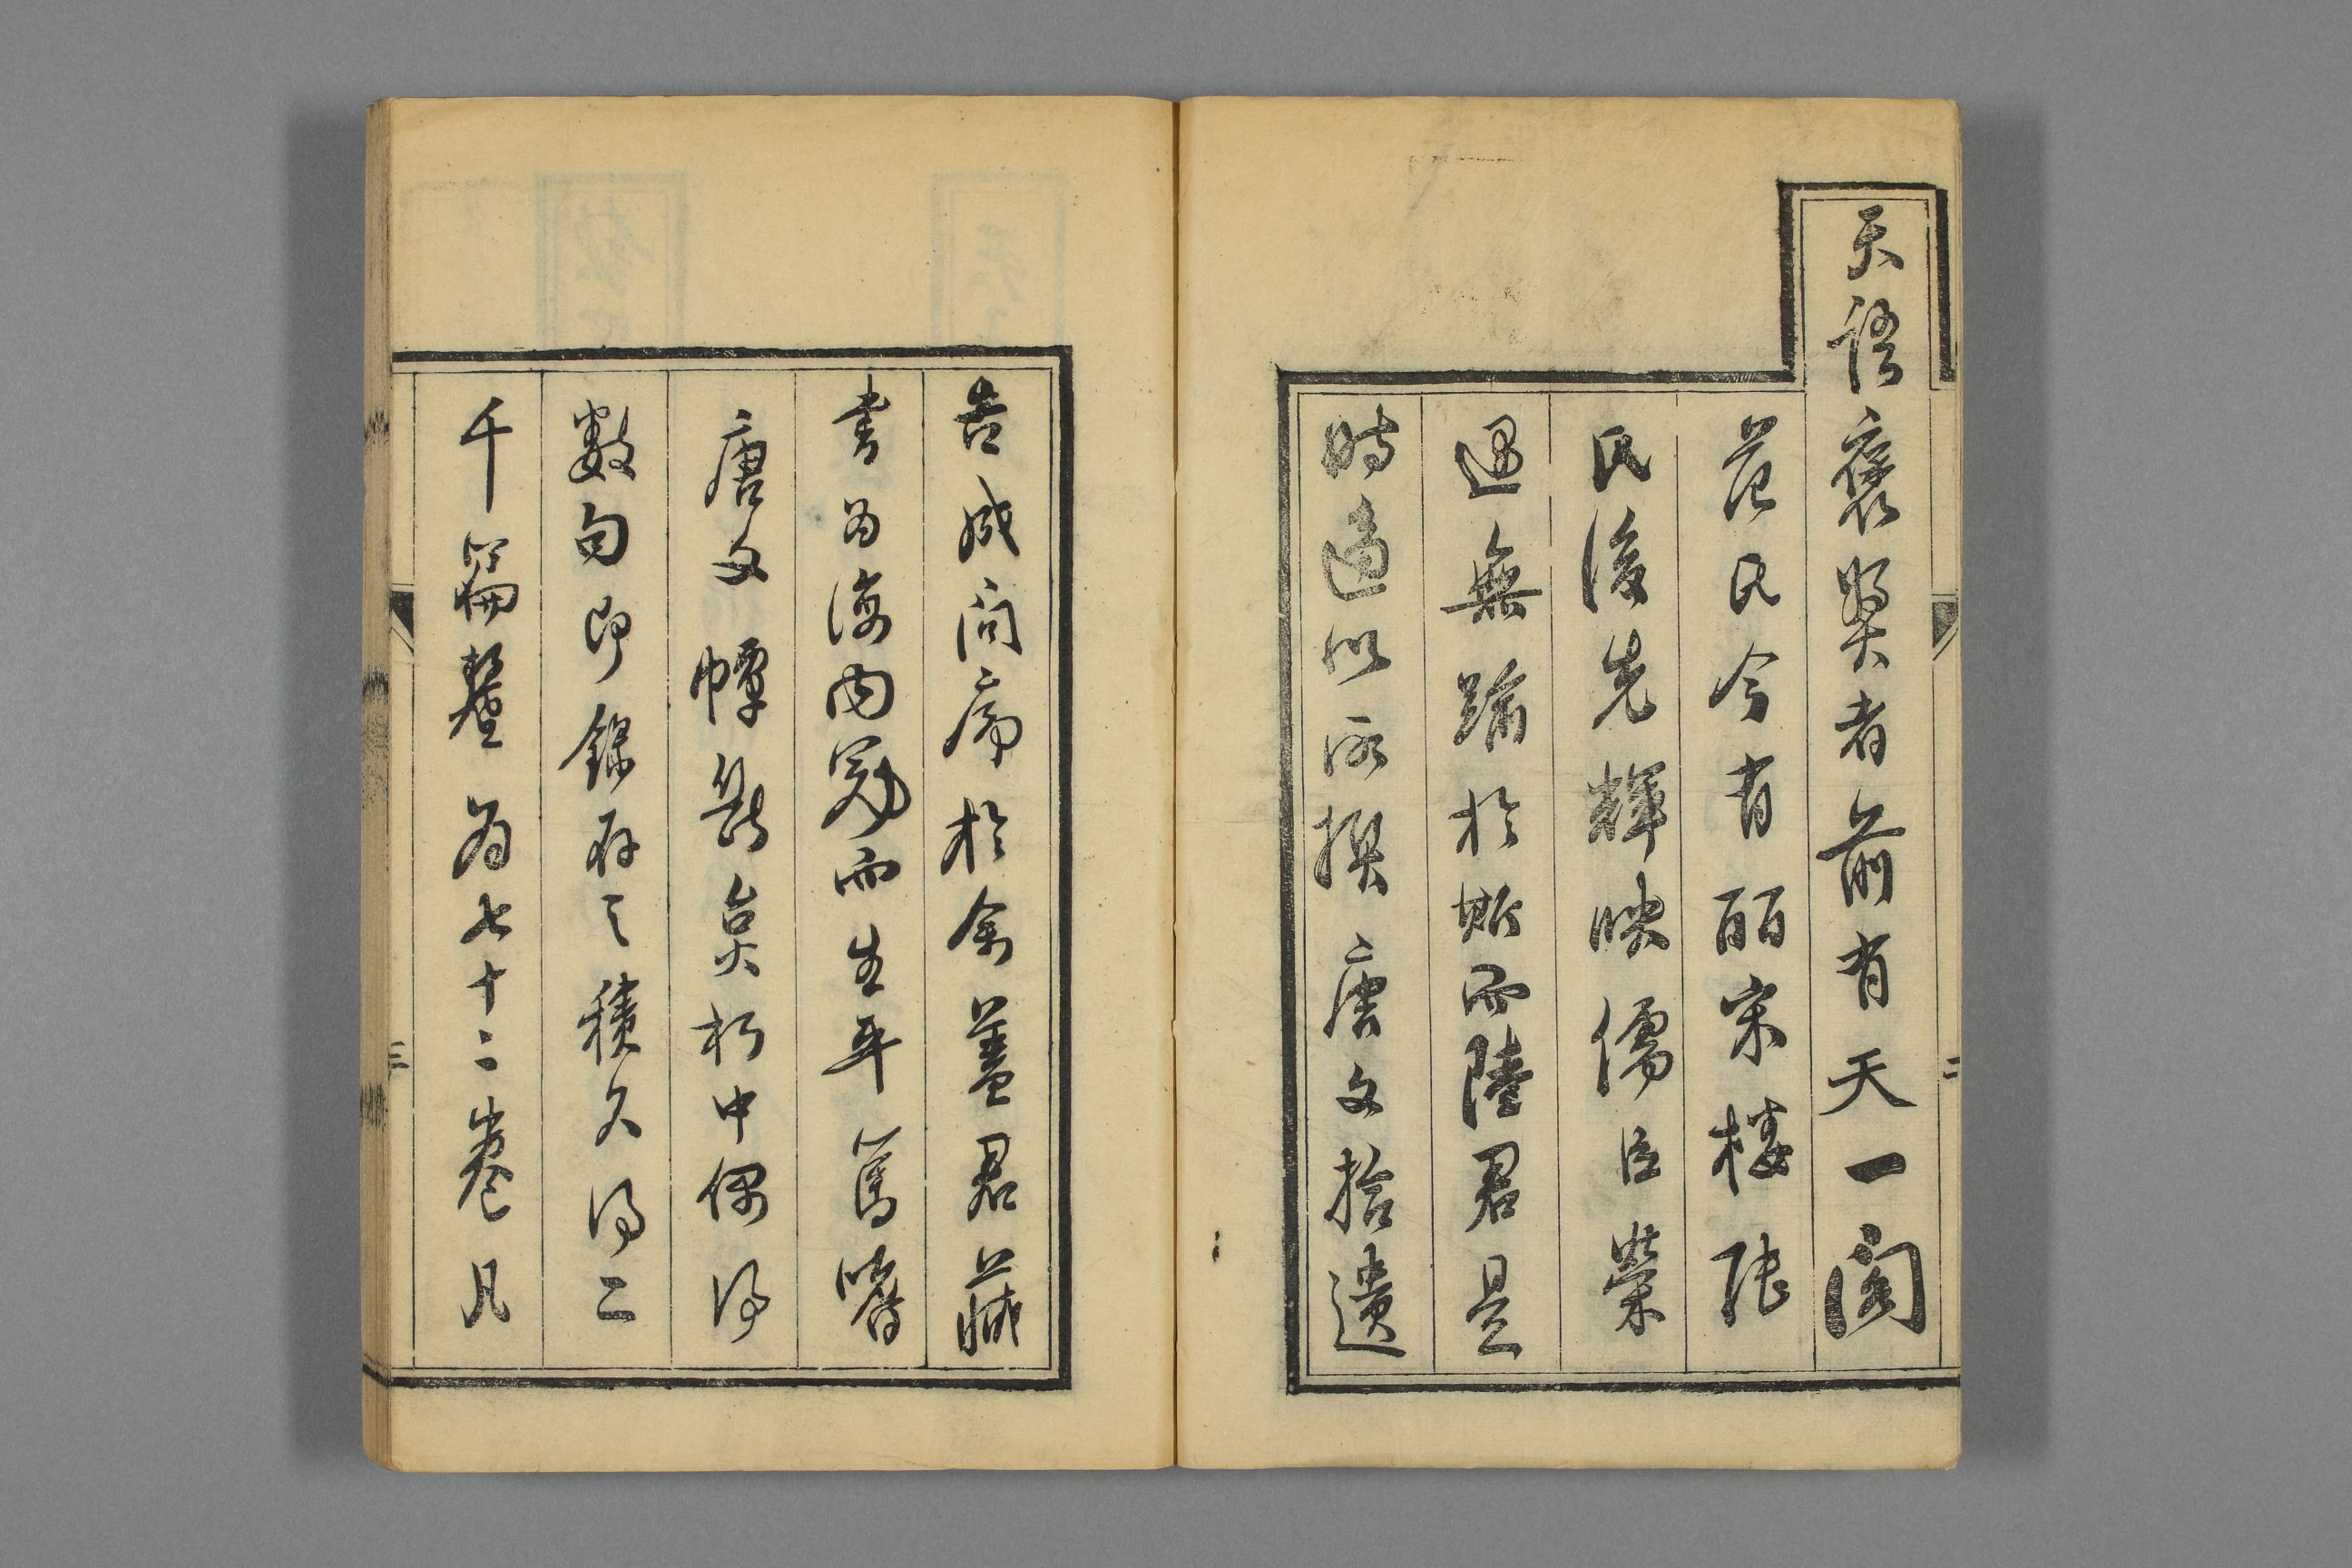 天語褒奨者前有天一閣
范氏今有皕宋樓陸
氏後先輝映儒臣榮
遇無踰於斯而陸君是
時適以所撰唐文拾遺
告成問序於余蓋君藏
書為海内冠而生平篤嗜
唐文幛斷炱朽中偶得
數句即錄存之積久得二
千篇釐為七十二卷凡
二
三